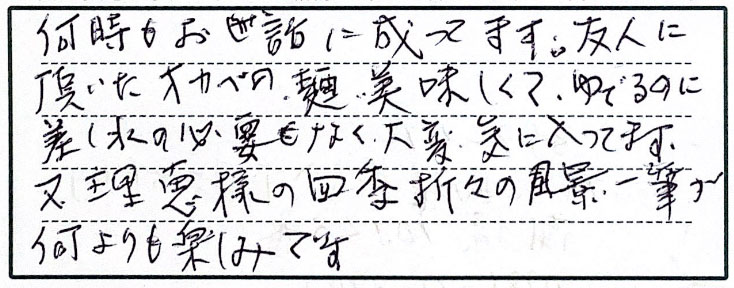 何時もお世話に成ってます。友人に
頂いたオカベの麺、美味しくて、ゆでるのに
差し水の必要もなく、大変、気に入ってます、
又、理恵様の四季折々の風景、一筆が
何よりも楽しみです